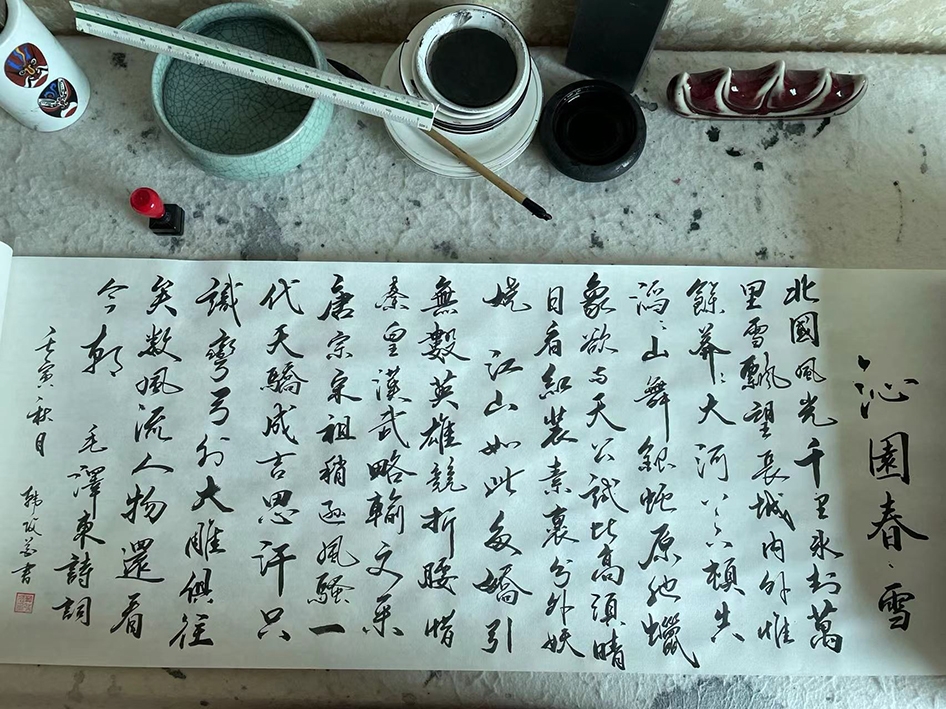 沁園春·雪
北國風光千里冰封萬
里雪飄望長城內外惟
餘莽〻大河上下頓失
滔〻山舞銀蛇原馳蠟
象欲与天公試比高須晴
日看紅裝素裹分外妖
嬈 江山如此多嬌引
無數英雄競折腰惜
秦皇漢武略輸文采
唐宗宋祖稍遜風騷一
代天驕成吉思汗只
識彎弓射大雕俱往
矣数風流人物還看
今朝 毛澤東詩詞
壬寅秋月 韩書